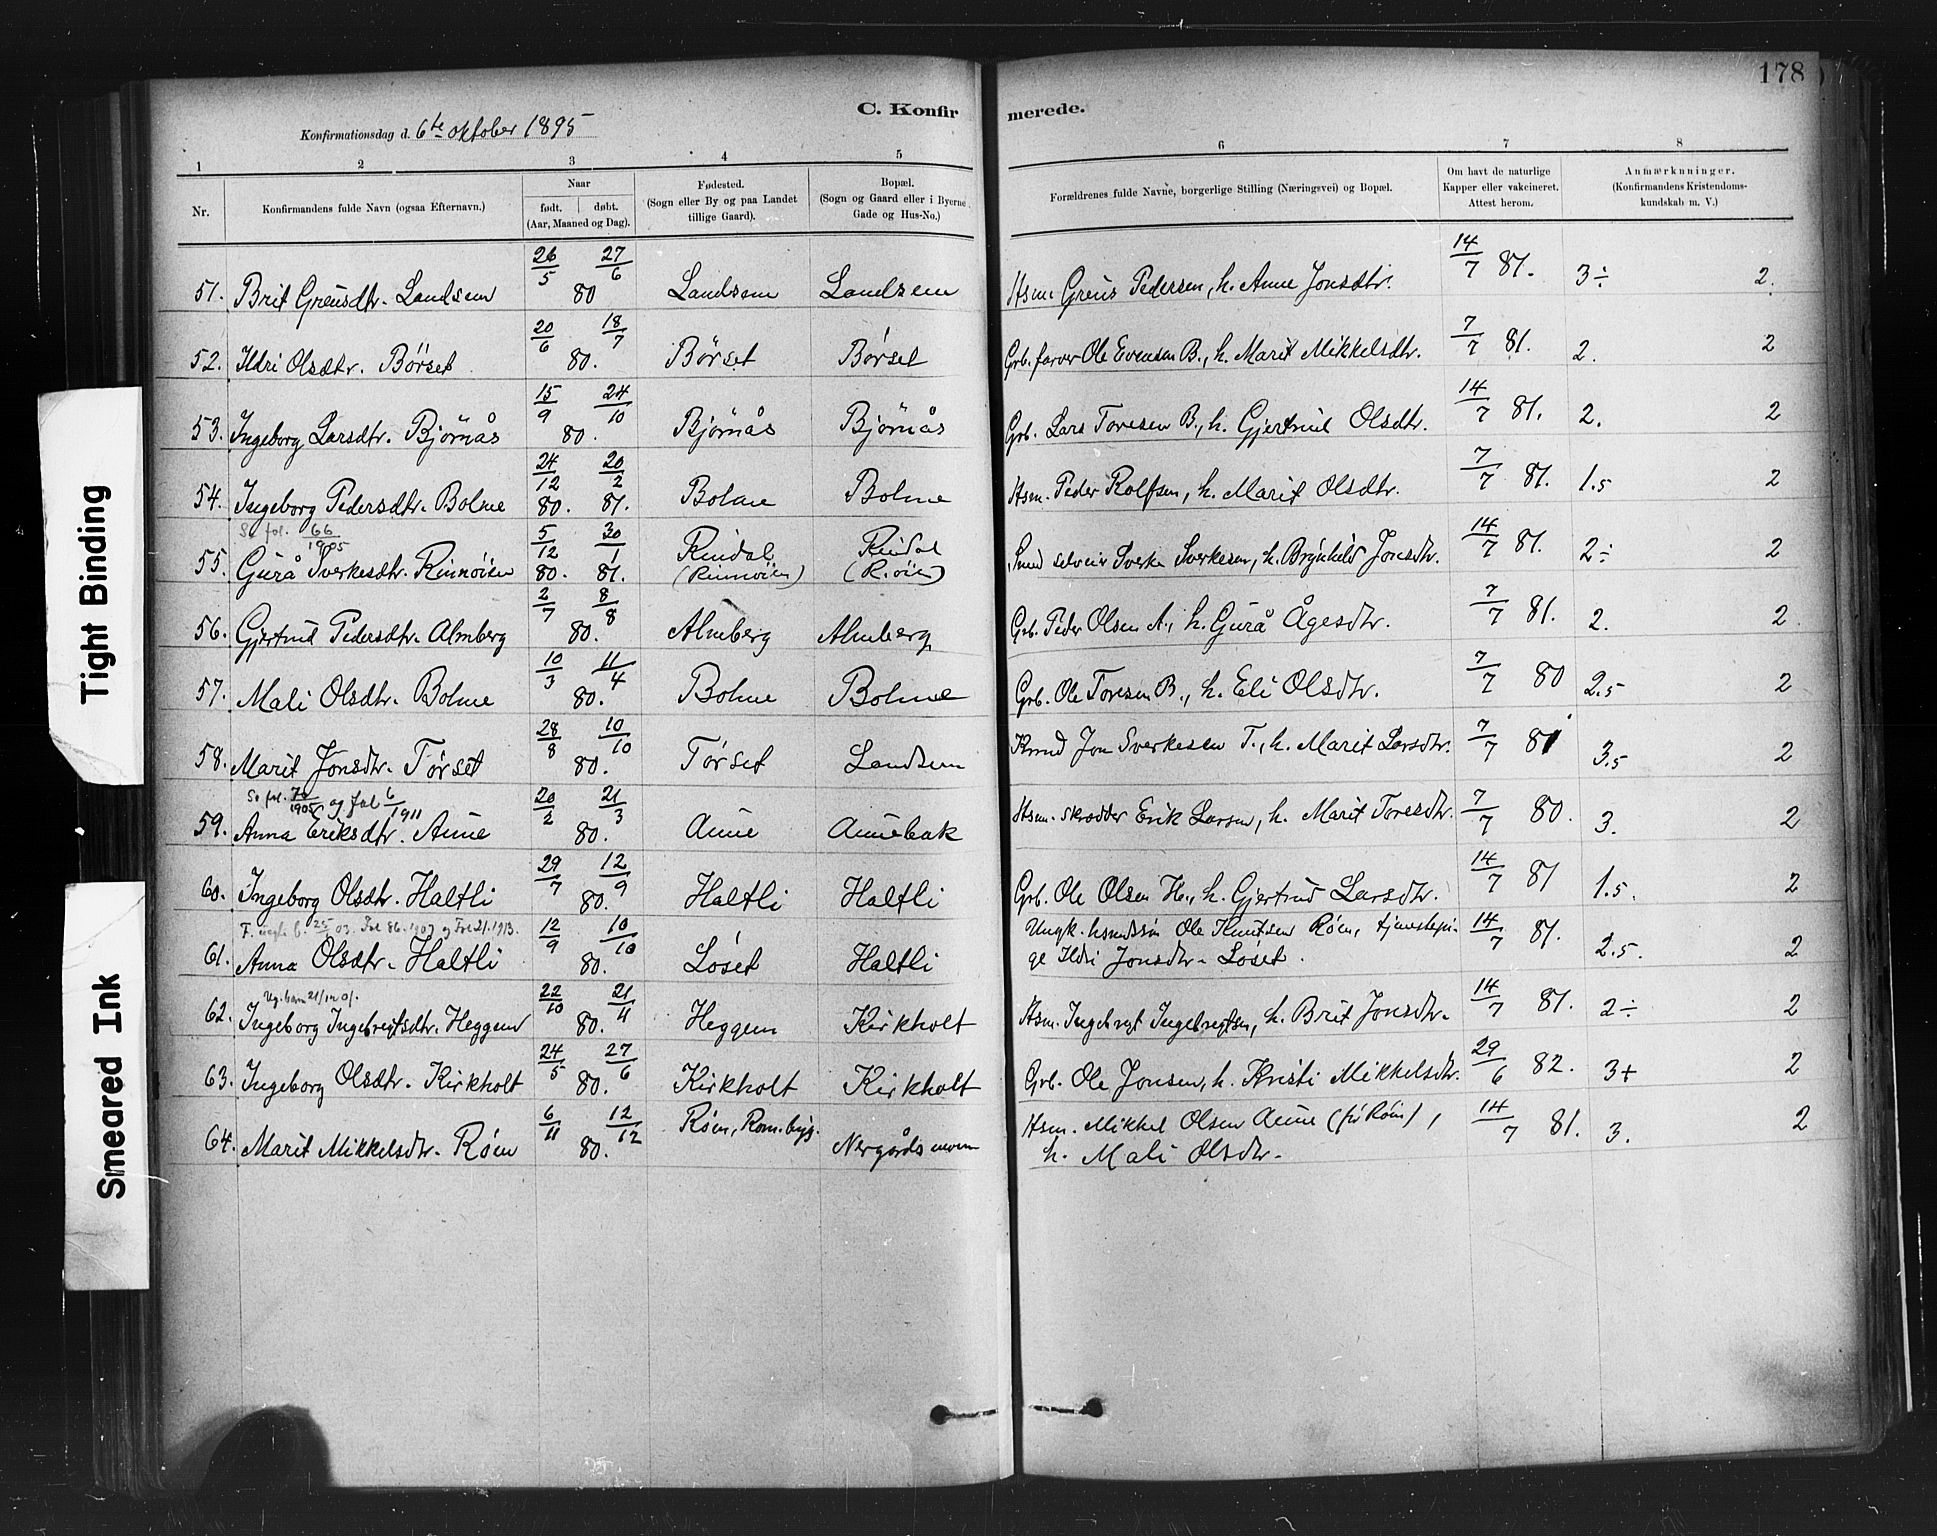 178
C. Konfirmerede.
Konfirmationsdag d. 6te oktober 1895
1 2 3 4 5 6 7 8
Nr. Konfirmandens fulde Navn (ogsaa Efternavn.) Naar født. døbt. (Aar, Maaned og Dag). Fødested. (Sogn eller By og paa Landet tillige Gaard). Bopæl. (Sogn og Gaard eller i Byerne Gade og Hus-No.) Forældrenes fulde Navne, borgerlige Stilling (Næringsvei) og Bopæl. Om havt de naturlige Kapper eller vakcineret. Attest herom. Anmærkninger. (Konfirmandens Kristendomskundskab m. V.)
51. Brit Greusdtr. Landsem 26/5 27/6 80 Landsem Landsem Hsm. Greus Pedersen, h. Anne Jonsdtr. 14/7 81. 3÷ 2.
52. Ildri Olsdtr. Børset 20/6 18/7 80. Børset Børset Grb. farver Ole Evensen B., h. Marit Mikkelsdtr. 7/7 81. 2. 2
53. Ingeborg Larsdtr. Bjørnås 15/9 24/10 80. Bjørnås Bjørnås Grb. Lars Toresen B., h. Gjertrud Olsdtr. 14/7 81. 2. 2
54. Ingeborg Pedersdtr. Bolme 24/12 80. 20/2 81. Bolme Bolme Hsm. Peder Rolfsen, h. Marit Olsdtr. 7/7 81. 1.5 2
Se fol. 66/1905
55. Gurå Sverkesdtr. Rinnøien 5/12 80. 30/1 81. Rindal (Rinnøien) Rindal (R.øien) Smed selveier Sverke Sverkesen, h. Brynhild Jonsdtr. 14/7 81. 2÷ 2
56. Gjertrud Pedersdtr. Almberg 2/7 8/8 80. Almberg Almberg Grb. Peder Olsen A., h. Gurå Ågesdtr. 7/7 81. 2. 2.
57. Mali Olsdtr. Bolme 10/3 11/4 80. Bolme Bolme Grb. Ole Toresen B., h. Eli Olsdtr. 7/7 80 2.5 2
58. Marit Jonsdtr. Tørset 28/8 10/10 80. Tørset Landsem Jon Sverkesen T., h. Marit Larsdtr. 7/7 81 3.5 2
Se fol. 70/1905 og fol 6/1911
59. Anna Eriksdtr. Aune 20/2 21/3 80. Aune Aunebak Hsm. skrædder Erik Larsen, h. Marit Toresdtr. 7/7 80. 3. 2
60. Ingeborg Olsdtr. Haltli 29/7 12/9 80. Haltli Haltli Grb. Ole Olsen H., h. Gjertrud Larsdtr. 14/7 81 1.5. 2
03. Fol 86. 1907 og Fol 21. 1913.
61. Anna Olsdtr. Haltli 12/9 10/10 80. Løset Haltli Ungk. husmdsøn Ole Knutsen Røen, tjenestepige Ildri Jonsdtr. Løset. 14/7 81. 2.5. 2
62. Ingeborg Ingebregtsdtr. Heggem 22/10 21/11 80. Heggem Kirkholt Hsm. Ingebregt Ingebregtsen, h. Brit Jonsdtr. 14/7 81. 2÷ 2
63. Ingeborg Olsdtr. Kirkholt 24/5 27/6 80. Kirkholt Kirkholt Grb. Ole Jonsen, h. Kristi Mikkelsdtr. 29/6 82. 3+ 2
64. Marit Mikkelsdtr. Røen 6/11 12/12 80. Røen, Rom.byg. Nergårdsmoen Hsm. Mikkel Olsen Aune (før Røen), h. Mali Olsdtr. 14/7 81. 3. 2
Tight Binding
Smeared Ink